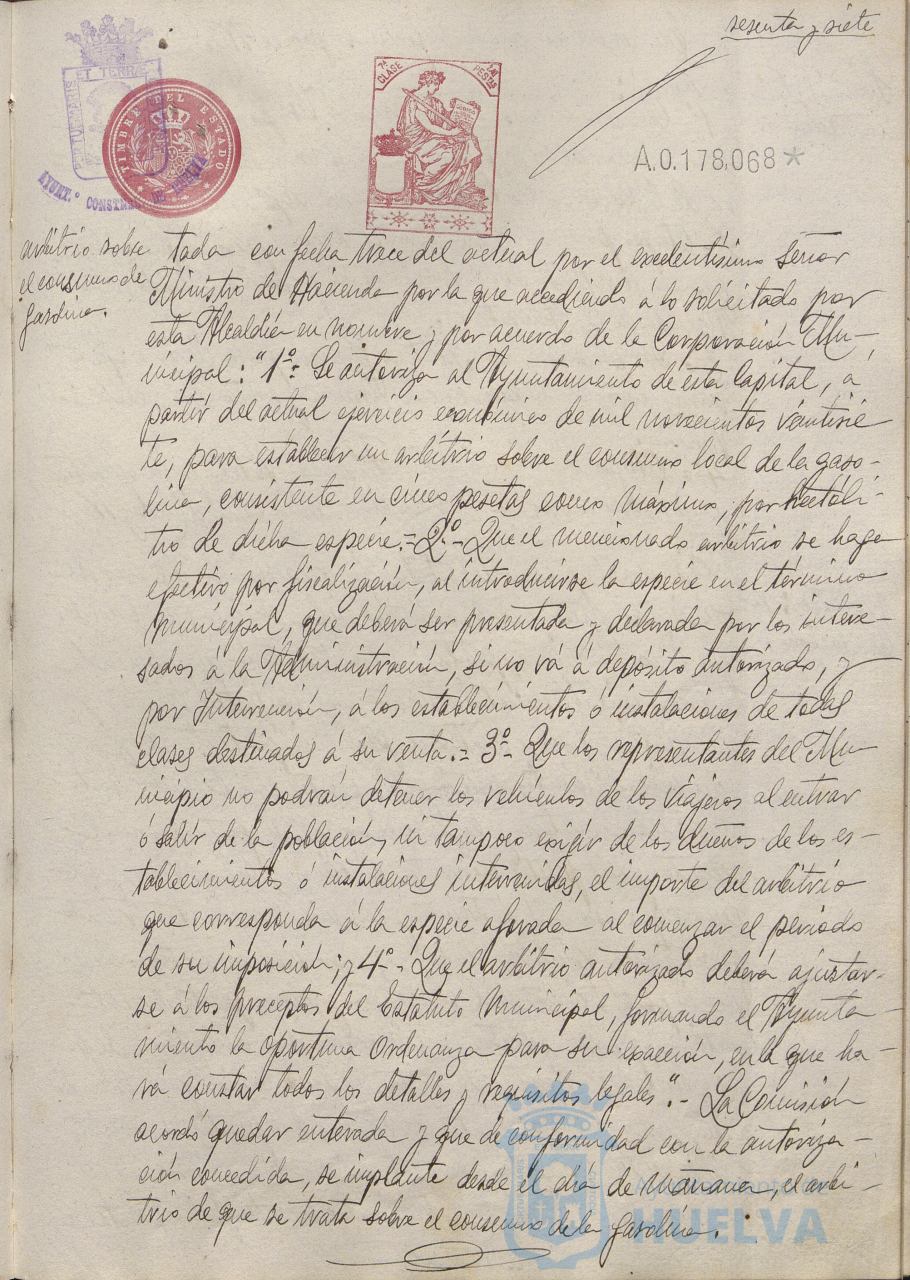 sesenta y siete
PORTUS MARIS ET TERRAE
AYUNT.º CONST
TIMBRE DEL ESTADO
7ª CLASE
PESTAS
A.0.178,068*
arbitrio sobre
el consumo de
gasolina.
tada con fecha trece del actual por el excelentísimo señor
Ministro de Hacienda por la que accediendo á lo solicitado por
esta Alcaldía en nombre y por acuerdo de la Corporación Mu-
nicipal: "1º- Se autoriza al Ayuntamiento de esta Capital, á
partir del actual ejercicio económico de mil novecientos veintisie
te, para establecer un arbitrio sobre el consumo local de la gaso-
lina, consistente en cinco pesetas como máximo, por hectóli-
tro de dicha especie.=2º- Que el mencionado arbitrio se haga
efectivo por fiscalización, al introducirse la especie en el término
municipal, que deberá ser presentada y declarada por los intere-
sados á la Administración, si no vá á depósito autorizado, y
por Intervención, á los establecimientos ó instalaciones de todas
clases destinados á su venta.= 3º- Que los representantes del Mu-
nicipio no podrán detener los vehículos de los viajeros al entrar
ó salir de la población, ni tampoco exigir de los dueños de los es-
tablecimientos ó instalaciones intervenidas, el importe del arbitrio
que corresponda á la especie aforada al comenzar el periodo
de su imposición; y 4º- Que el arbitrio autorizado deberá ajustar-
se á los preceptos del Estatuto Municipal, formando el Ayunta-
miento la oportuna Ordenanza para su exacción, en la que ha-
rá constar todos los detalles y requisitos legales".- La Comisión
acordó quedar enterada y que de conformidad con la autoriza-
ción concedida, se implante desde el día de mañana, el arbi-
trio de que se trata sobre el consumo de la gasolina.
HUELVA